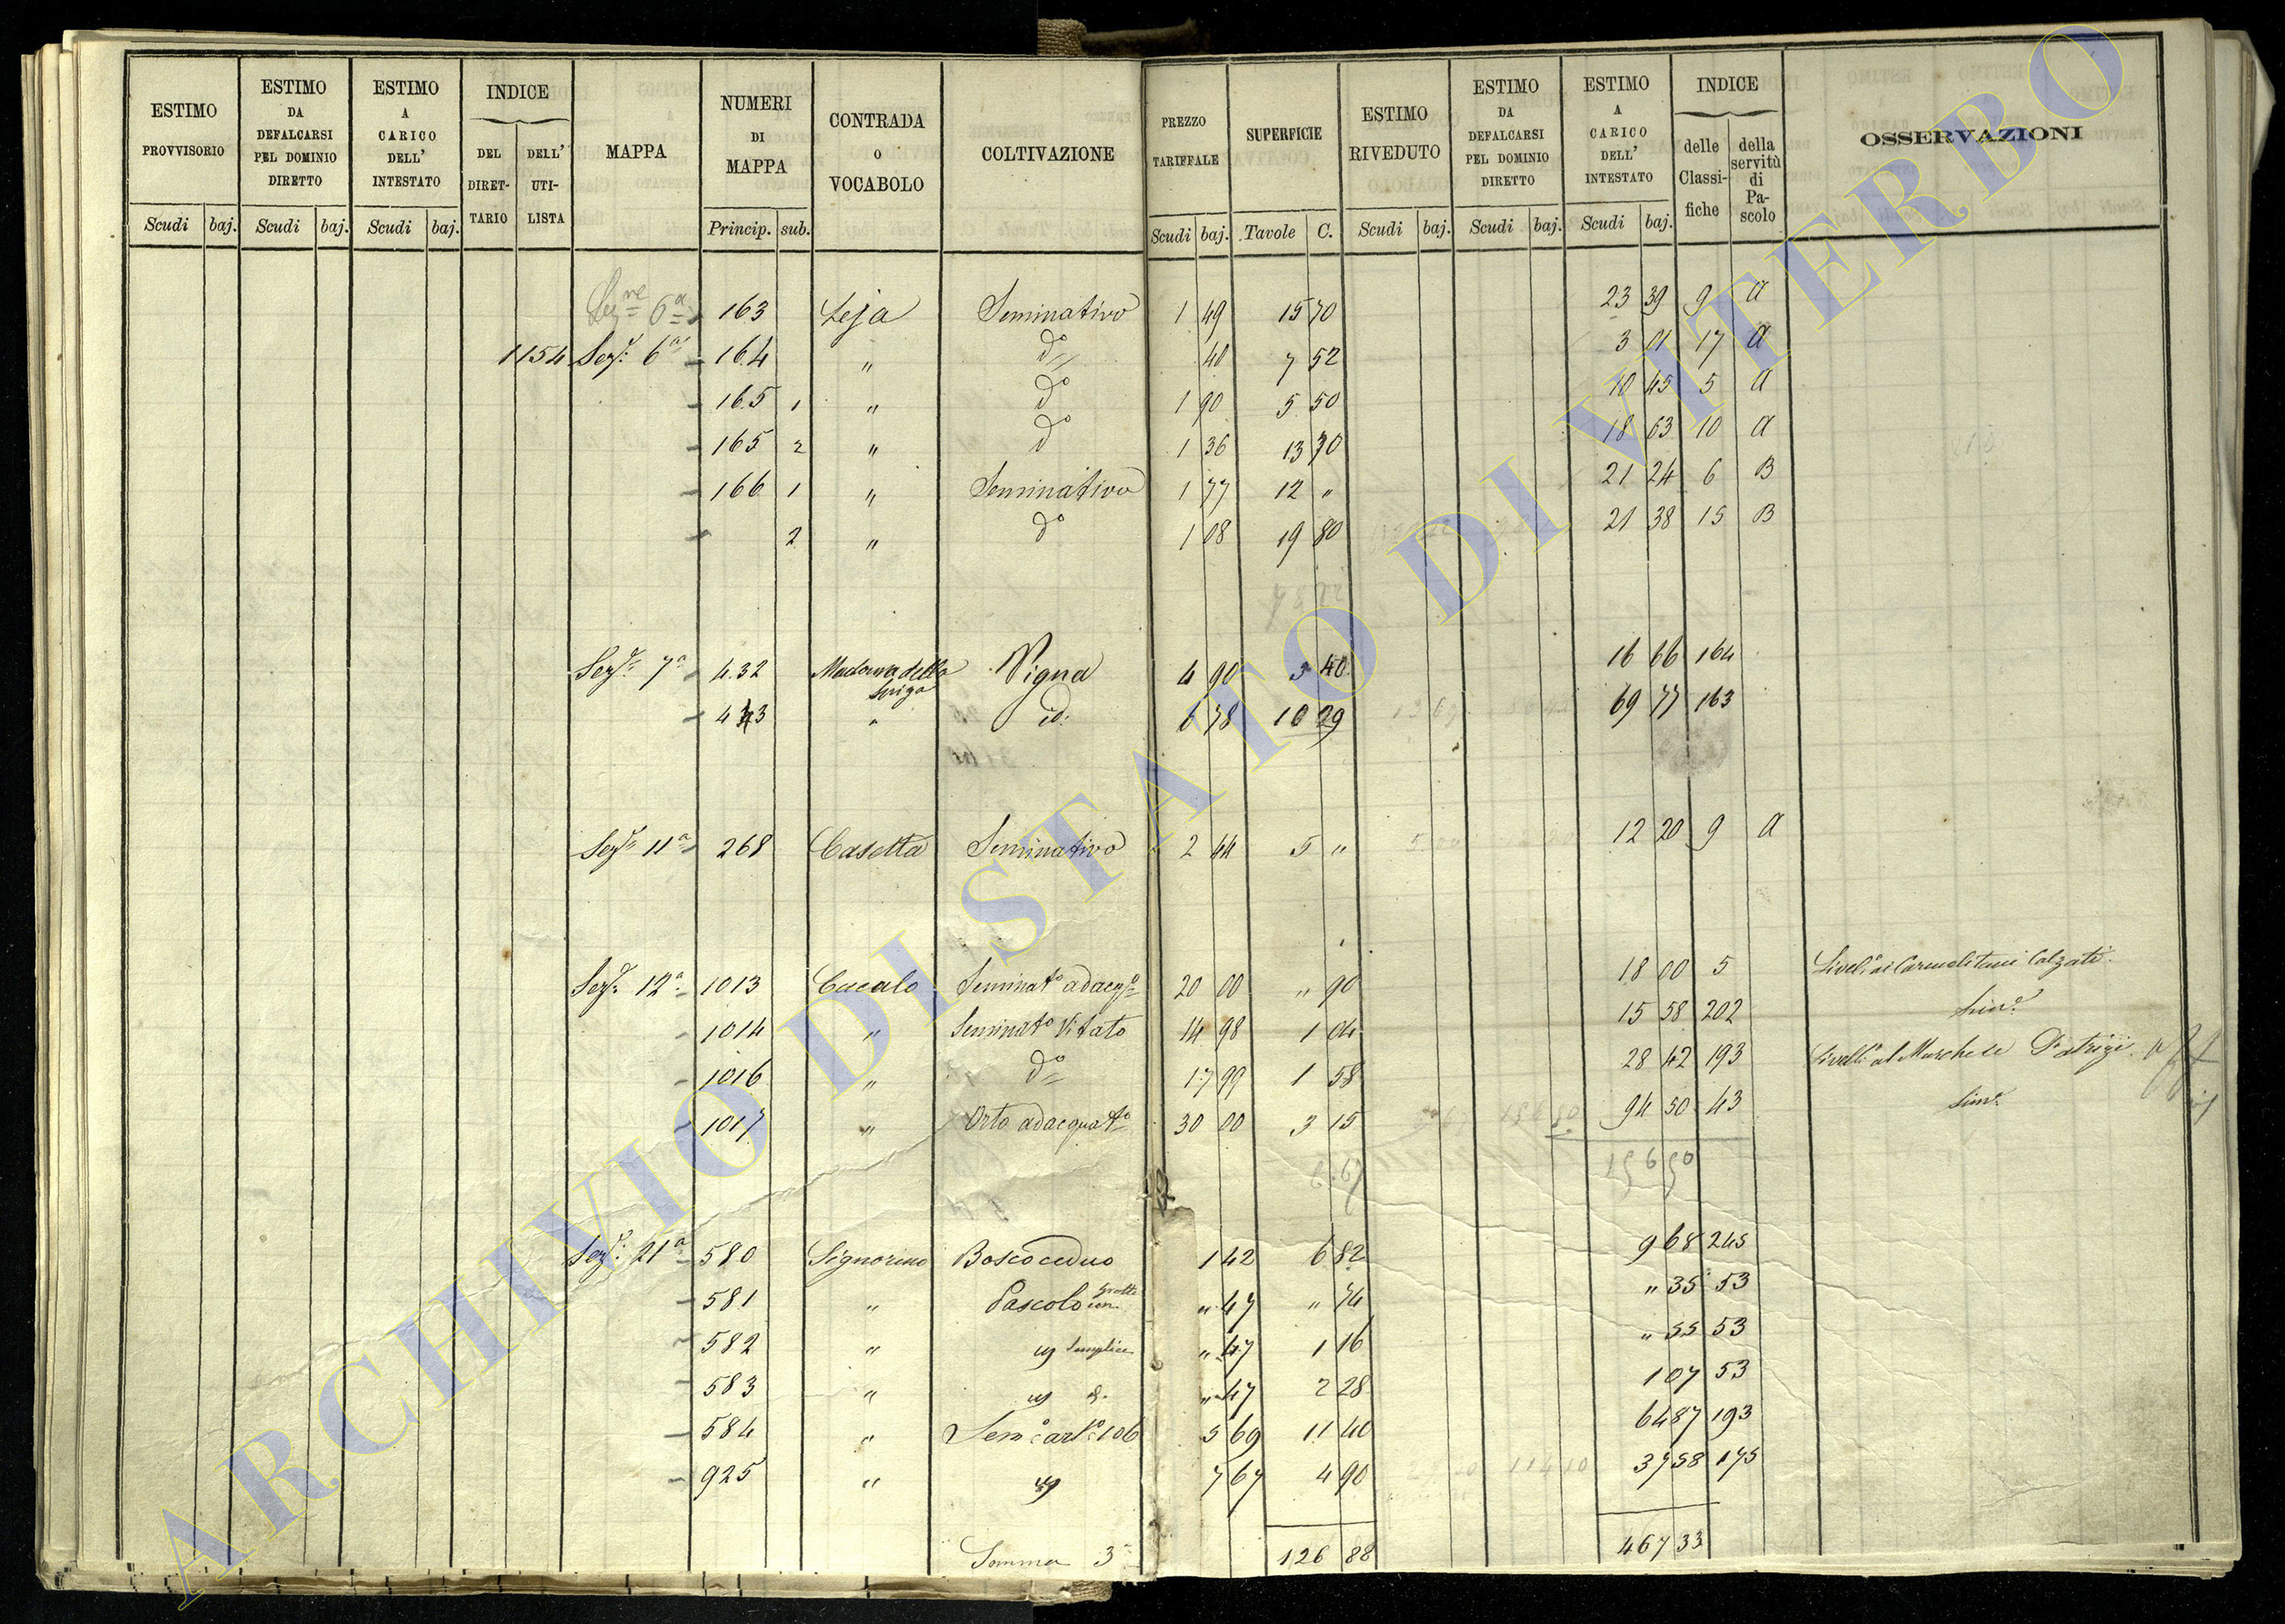 ESTIMO PROVVISORIO | ESTIMO DA DEFALCARSI PEL DOMINIO DIRETTO | ESTIMO A CARICO DELL' INTESTATO | INDICE DEL DIRETTARIO | DELL' UTILISTA | MAPPA | NUMERI DI MAPPA | CONTRADA O VOCABOLO | COLTIVAZIONE | PREZZO TARIFFALE | SUPERFICIE | ESTIMO RIVEDUTO | ESTIMO DA DEFALCARSI PEL DOMINIO DIRETTO | ESTIMO A CARICO DELL' INTESTATO | INDICE delle Classifiche | della servitù di Pascolo | OSSERVAZIONI
Scudi baj. Scudi baj. Scudi baj. Princip. sub. Scudi baj. Tavole C. Scudi baj. Scudi baj. Scudi baj.
Sez.ne 6a 163 Leja Seminativo 1 49 15 70 23 39 9 A
1154 Sez.e 6a 164 " do 40 7 52 3 01 17 A
165 1 " do 1 90 5 50 10 45 5 A
165 2 " do 1 36 13 70 18 63 10 A
166 1 " Seminativo 1 77 12 " 21 24 6 B
2 " do 1 08 19 80 21 38 15 B
Sez.e 7a 432 Madonna della 4 90 3 40 16 66 164
Vigna
443 " id. 6 78 10 29 69 77 163
Sez.e 11a 268 Casetta Seminativo 2 44 5 " 12 20 9 A
Sez.e 12a 1013 Cucalo Seminato adacqo 20 00 " 90 18 00 5 Livelo ai Carmelitani Calzati
1014 " Seminato Vitato 14 98 1 04 15 58 202
1016 " do 17 99 1 58 28 42 193 Livello al Marchese Patrizi
1017 " Orto adacquato 30 00 3 15 94 50 43
156 50
Sez.e 21a 580 Signorino Bosco ceduo 1 42 6 82 9 68 245
581 " Pascolo con grotte " 47 " 74 " 35 53
582 " semplice " 47 1 16 " 55 53
583 " " 47 2 28 1 07 53
584 " Sem.o art.o 106 5 69 11 40 64 87 193
925 " 7 67 4 90 37 58 175
Somma 3 126 88 467 33
ARCHIVIO DI STATO DI VITERBO